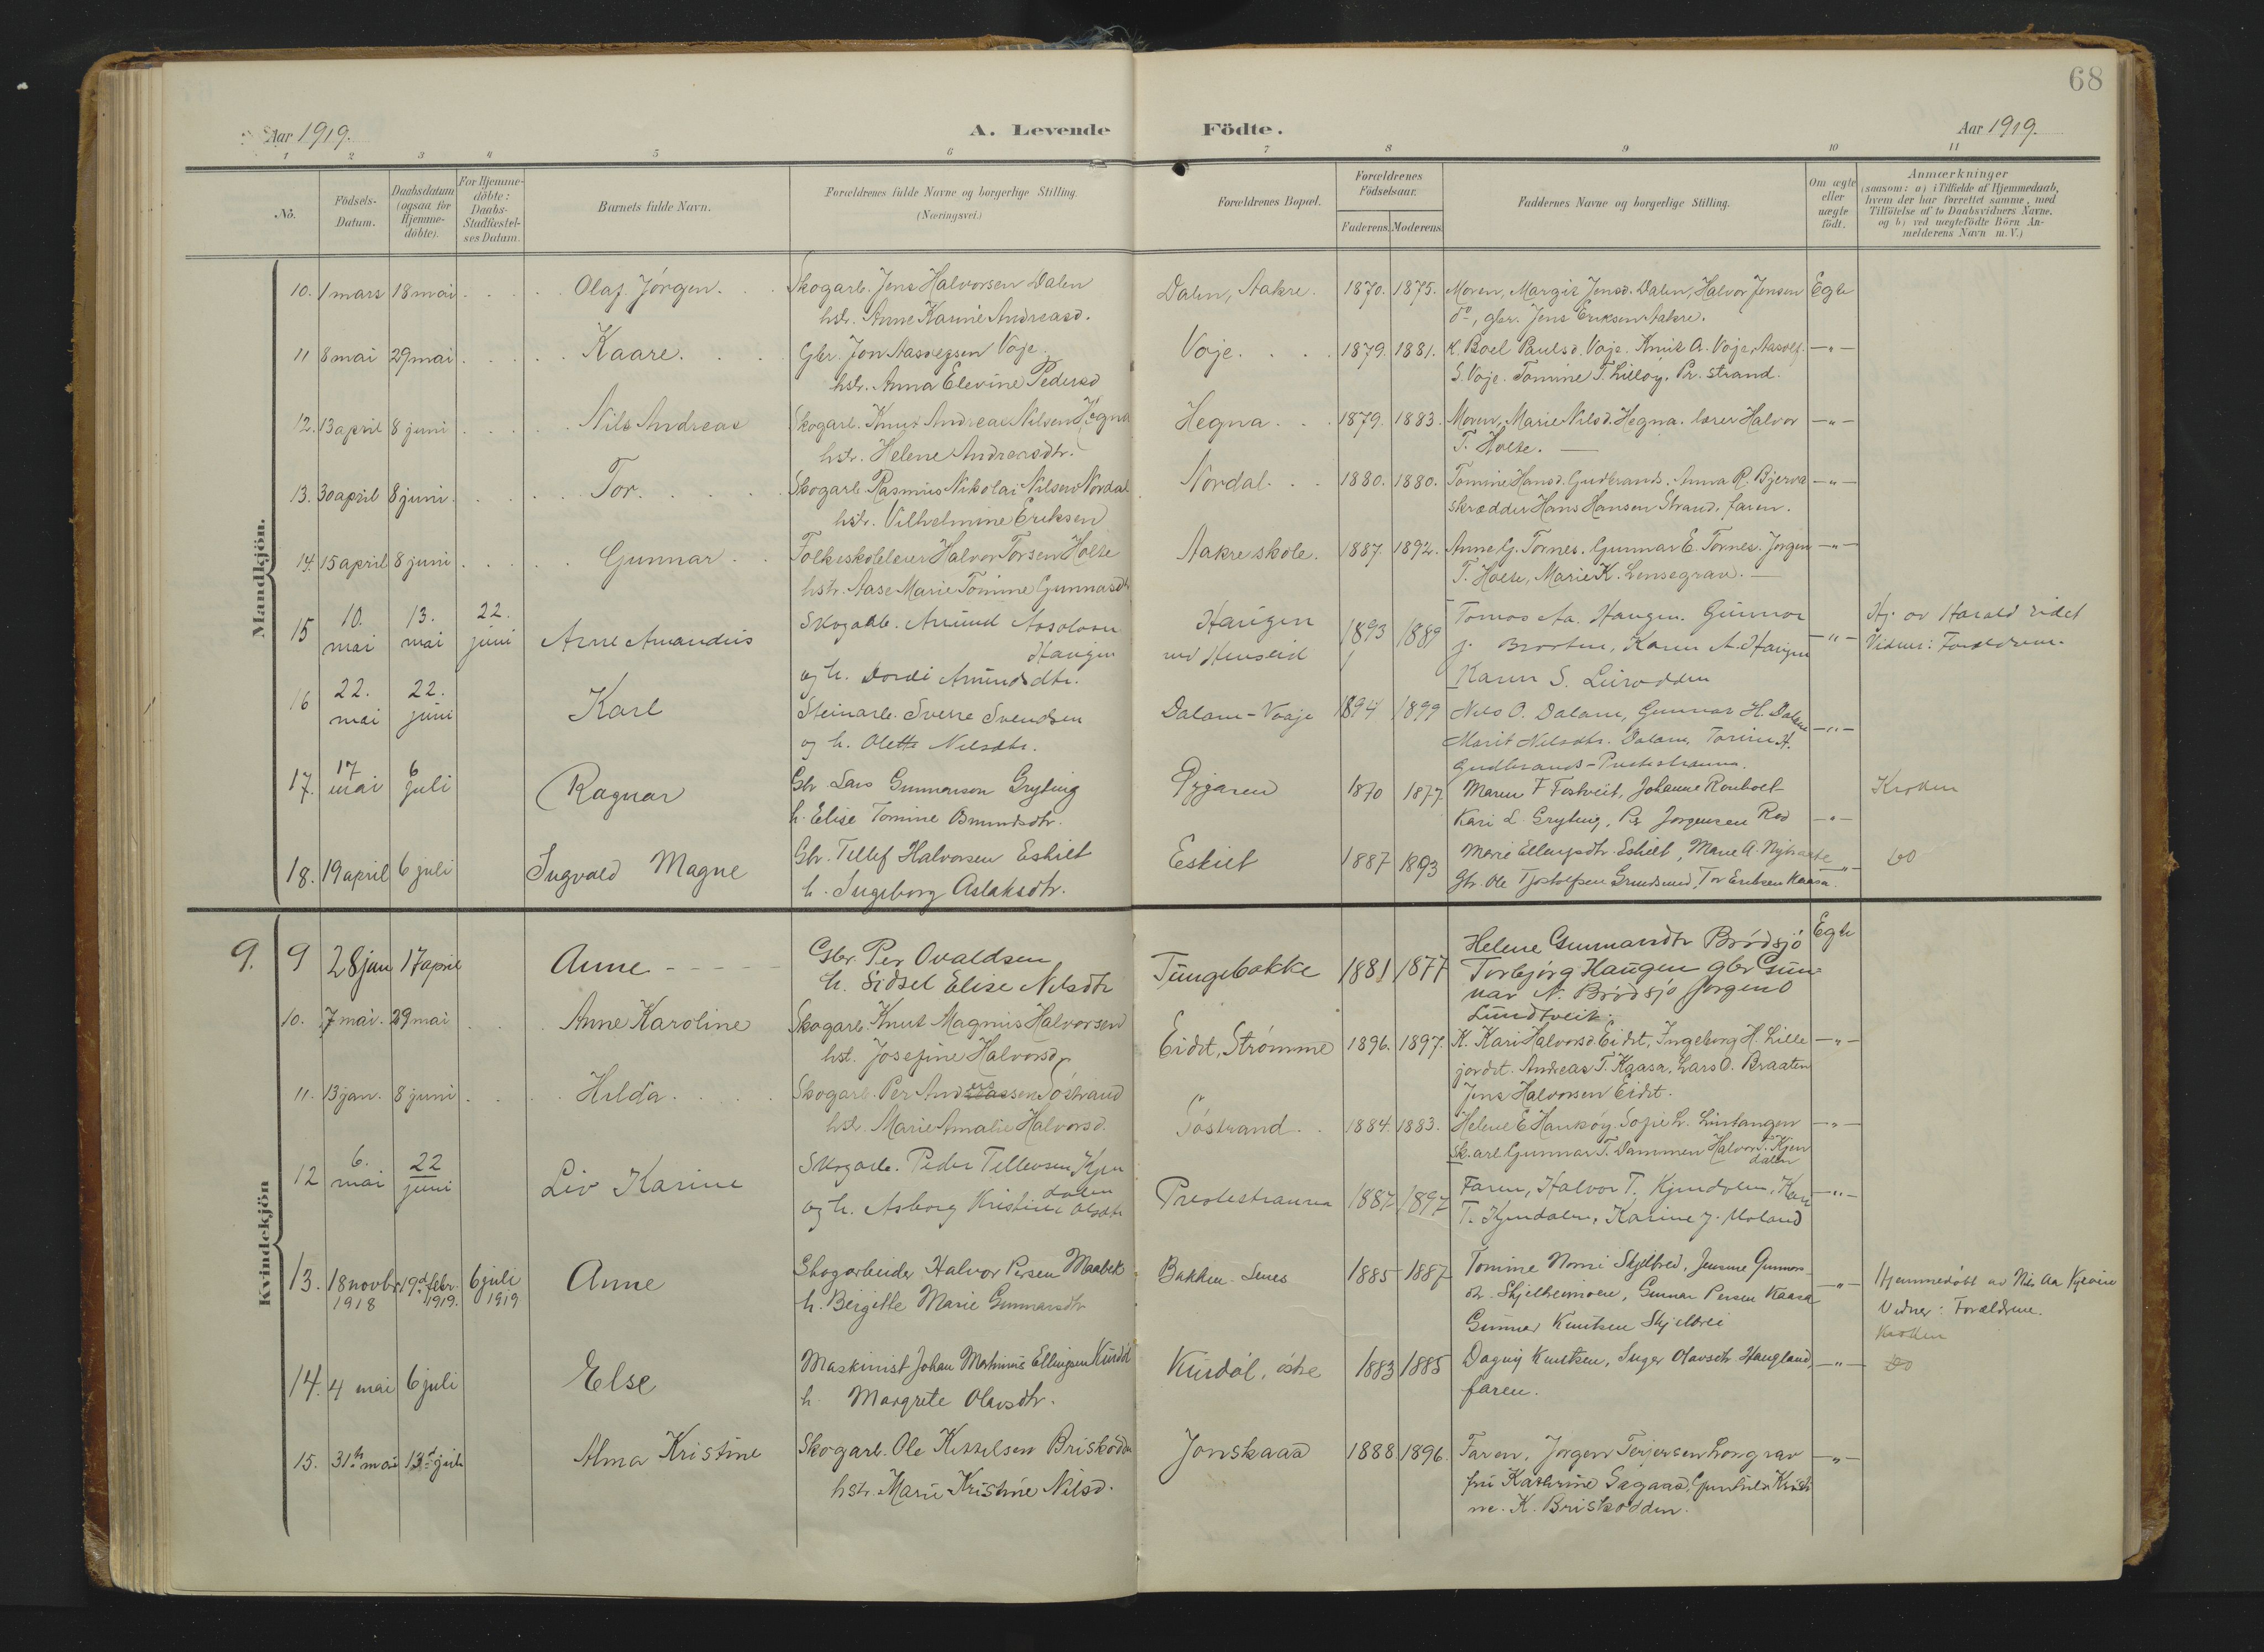 68
Aar 1919.
A. Levende Födte.
Aar 1919.
1 2 3 4 5 6 7 8 9 10 11
Nö.
Födsels-Datum.
Daabsdatum (ogsaa for Hjemme-döbte).
For Hjemme-döbte: Daabs-Stadfæstel-ses Datum.
Barnets fulde Navn.
Forældrenes fulde Navne og borgerlige Stilling. (Næringsvei.)
Forældrenes Bopæl.
Forældrenes Födselsaar.
Faderens. Moderens.
Faddernes Navne og borgerlige Stilling.
Om ægte eller uægte födt.
Anmærkninger
(saasom: a) i Tilfælde af Hjemmedaab, hvem der har forrettet samme, med Tilföielse af to Daabsvidners Navne. og b) ved uægtefödte Börn An-melderens Navn m.V.)
Mandkjön.
10. 1 mars 18 mai Olaf Jörgen. Skogarb. Jens Halvorsen Dalen Dalen, Aakre. 1870. 1875. Moren, Margit Jensd. Dalen, Halvor Jensen Egte
hstr. Anne Karine Andreasd. do, gbr. Jens Eriksen Aakre.
11 8 mai 29 mai Kaare. Gbr. Jon Aasvegsen Voje Voje. 1879. 1881. K. Boel Paulsd. Voje. Knut A. Voje, Aasveg -"-
hstr. Anna Elevine Pedersd S. Voje. Tomine T. Lilleöy. Pr. Strand.
12. 13 april 8 juni Nils Andreas Skogarb. Knut Andreas Nilsen Hegna Hegna. 1879. 1883. Moren, Marie Nilsd. Hegna. lærer Halvor -"-
hstr. Helene Andreasdtr. T. Holte.
13. 30 april 8 juni Tor. Skogarb. Rasmus Nikolai Nilsen Nordal Nordal. 1880. 1880. Tomine Hansd. Gudbrands. Anna R. Bjerva -"-
hstr. Vilhelmine Eriksen Skrædder Hans Hansen Strand, faren.
14. 15 april 8 juni Gunnar Folkeskolelærer Halvor Torsen Holte Aakre skole. 1887. 1892. Anne G. Tornes. Gunnar E. Tornes. Jorgen -"-
hstr. Aase Marie Tomine Gunnasdtr T. Holte, Marie K. Lensegrav.
15 10. mai 13. mai 22. juni Arne Amandus Skogarb. Amund Aasolosen Haugen Haugen ved Henseid 1893 1889 Tomas Aa. Haugen. Gunnar -"- Hj. av Harald Eidet
og h. Dordi Amundsdtr. J. Braaten, Karen A. Haugen Vidner: Forældrene.
Karen S. Livrodden
16 22. mai 22. juni Karl Steinarb. Sverre Svendsen Dalam-Voaje 1894 1899 Nils O. Dalam, Gunnar H. Dalam -"-
og h. Olette Nilsdtr. Marit Nilsdtr. Dalam, Tomine H.
Gudbrands-Prestestranna.
17. 17 mai 6 juli Ragnar Gbr Lars Gunnarson Gryting 1870 1877 Maren F Fostveit, Johanne Rønholt Kroken
h. Elise Tomine Osmundsdtr. Kari L. Gryting, Per Jorgensen Rød -"-
18. 19 april 6 juli Ingvald Magne Gbr. Tellef Halvorsen Eskilt Eskilt 1887 1893 Marie Ellingsdtr. Eskilt, Marie A. -"- do
h. Ingeborg Aslaksdtr. Gbr. Ole Tjostolfsen Grudsund, Tor Eriksen Kaasa.
Kvindekjön
9. 9 28 jan 17 april Anne Gbr. Per Ovaldsen Tungebakke 1881 1877 Helene Gunnarsdtr Brødsjö Egte
h. Sidsel Elise Nilsdtr Torbjörg Haugen gbr Gun-
nar N. Brödsjö Jorgen O
Lundtveit.
10. 7 mai. 29 mai Anne Karoline Skogarb. Knut Magnus Halvorsen Eidet, Strømme 1896. 1897. K. Kari Halvorsd. Eidet, Ingeborg H. Lille -"-
hst. Josefine Halvorsd. jordet. Andreas T. Kaasa, Lars O. Braaten
Jens Halvorsen Eidet.
11. 13 jan. 8 juni Hilda. Skogarb. Per Andersen Söstrand Söstrand 1884. 1883. Helene E Hansöy. Sofie L. Lintangen -"-
hstr. Marie Amalie Halvorsd. Sk. arb. Gunnar T. Dammen Halvor T. Kjen
dalen
12 6. mai 22 juni Liv Karine Skogarb. Peder Tellevsen Kjen dalen Prestestranna 1887 1897 Faren, Halvor T. Kjendalen, Kari -"-
og h. Asborg Kristine Olsdtr T. Kjendalen, Karine J. Moland
13. 18 novbr 1918 19d. febr. 1919. 6 juli 1919 Anne Skogarbeider Halvor Persen Maabek Bakken. Senes 1885 1887 Tomine Skjelbred, Jensine Gunnars- -"- Hjemmedöbt av Nils Aa
h. Bergitte Marie Gunnarsdtr dtr. Skjelheimoen, Gunnar Persen Kaasa Vidner: Forældrene.
Gunnar Knutsen Skjelbrei Kroken
14. 4 mai 6 juli Else Maskinist Johan Martinius Ellingsen Kurdöl Kurdöl, östre 1883 1885 Dagny Knutsen, Inger Olavsdtr. Haugland, -"- do
h. Margrete Olavsdtr. faren.
15. 31te mai 13d juli Alma Kristine Skogarb. Ole Kittelsen Briskodden Jonskaas 1888 1896. Faren, Jorgen Terjersen Longrav -"-
hstr. Marie Kristine Nilsd. fru Kathrine Sagaas, Gunhild Kristi
ne. K. Briskodden.